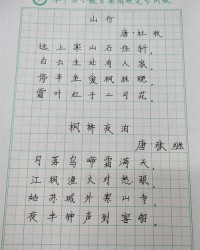 山行
唐·杜牧
远上寒山石径斜，
白云生处有人家。
停车坐爱枫林晚，
霜叶红于二月花。
枫桥夜泊
唐张继
月落乌啼霜满天，
江枫渔火对愁眠。
姑苏城外寒山寺，
夜半钟声到客船。